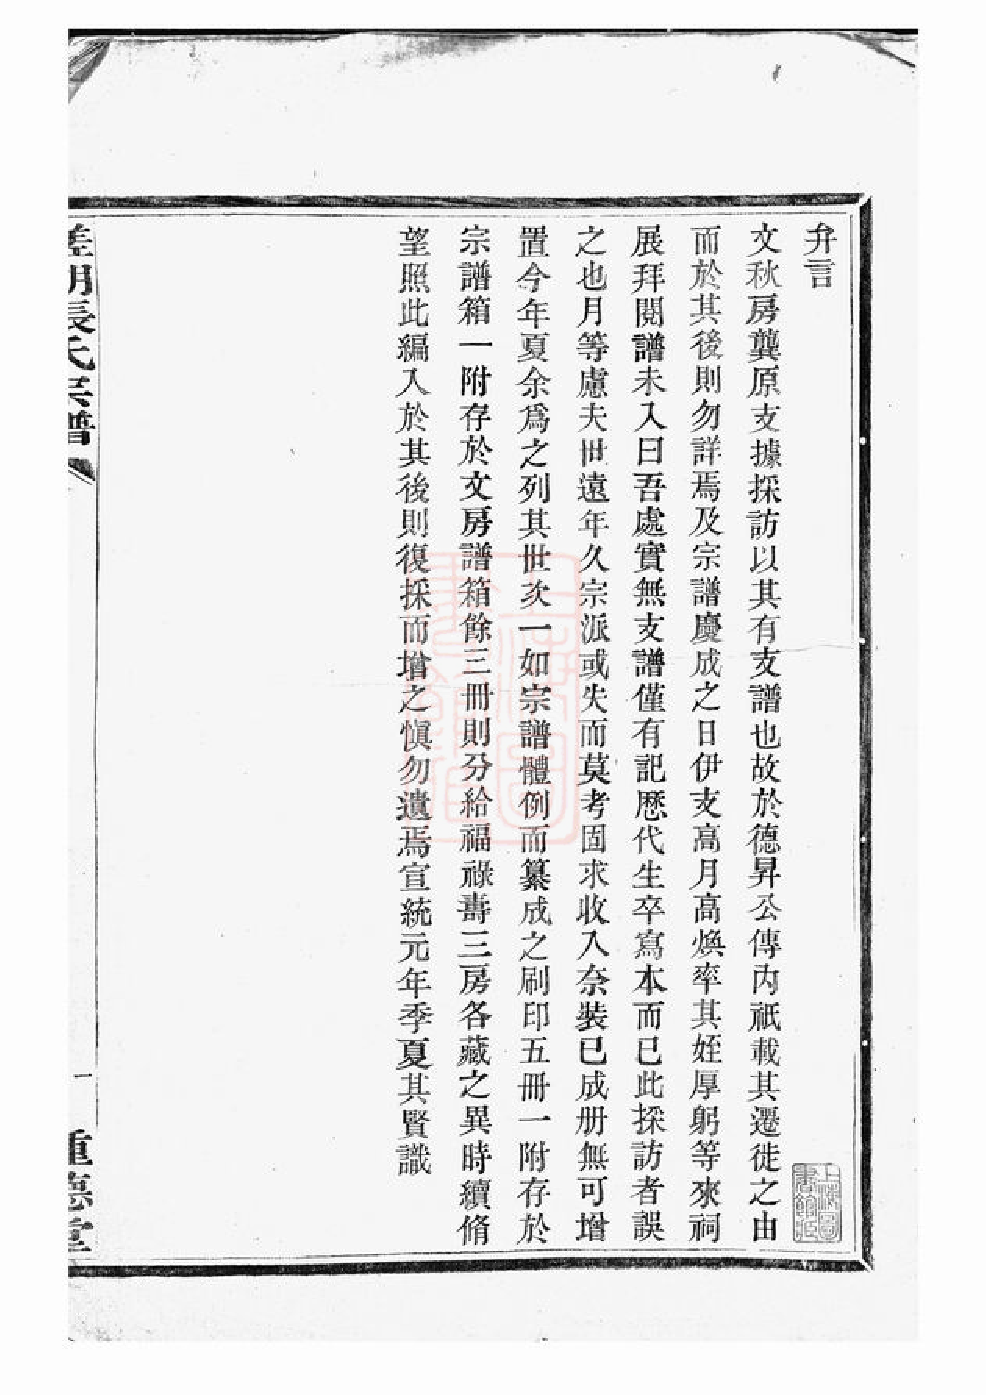 弁言
文秋房龔原支據採訪以其有支譜也故於德昇公傳內祇載其遷徙之由
而於其後則勿詳焉及宗譜慶成之日伊支高月高煥率其姪厚躬等來祠
展拜閱譜未入曰吾處實無支譜僅有記歷代生卒寫本而已此採訪者誤
之也月等慮夫世遠年久宗派或失而莫考固求收入奈裝已成册無可增
置今年夏余爲之列其世次一如宗譜體例而纂成之刷印五冊一附存於
宗譜箱一附存於文房譜箱餘三冊則分給福祿壽三房各藏之異時續脩
望照此編入於其後則復採而增之愼勿遺焉宣統元年季夏其賢識
張氏宗譜
一
重德堂
上海圖書館藏